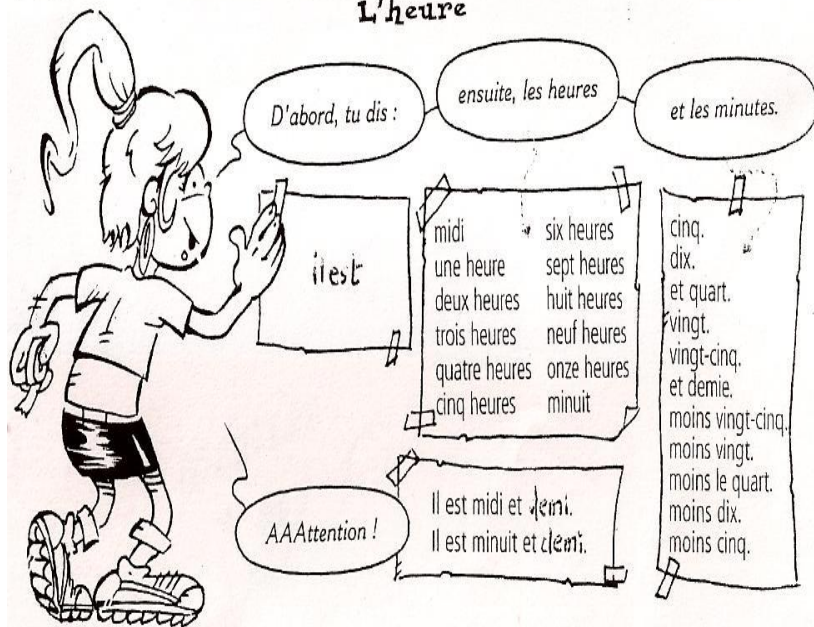 L'heure
D'abord, tu dis :
ensuite, les heures
et les minutes.
il est
midi
une heure
deux heures
trois heures
quatre heures
cinq heures
six heures
sept heures
huit heures
neuf heures
onze heures
minuit
cinq.
dix.
et quart.
vingt.
vingt-cinq.
et demie.
moins vingt-cinq.
moins vingt.
moins le quart.
moins dix.
moins cinq.
AAAttention !
Il est midi et demi.
Il est minuit et demi.